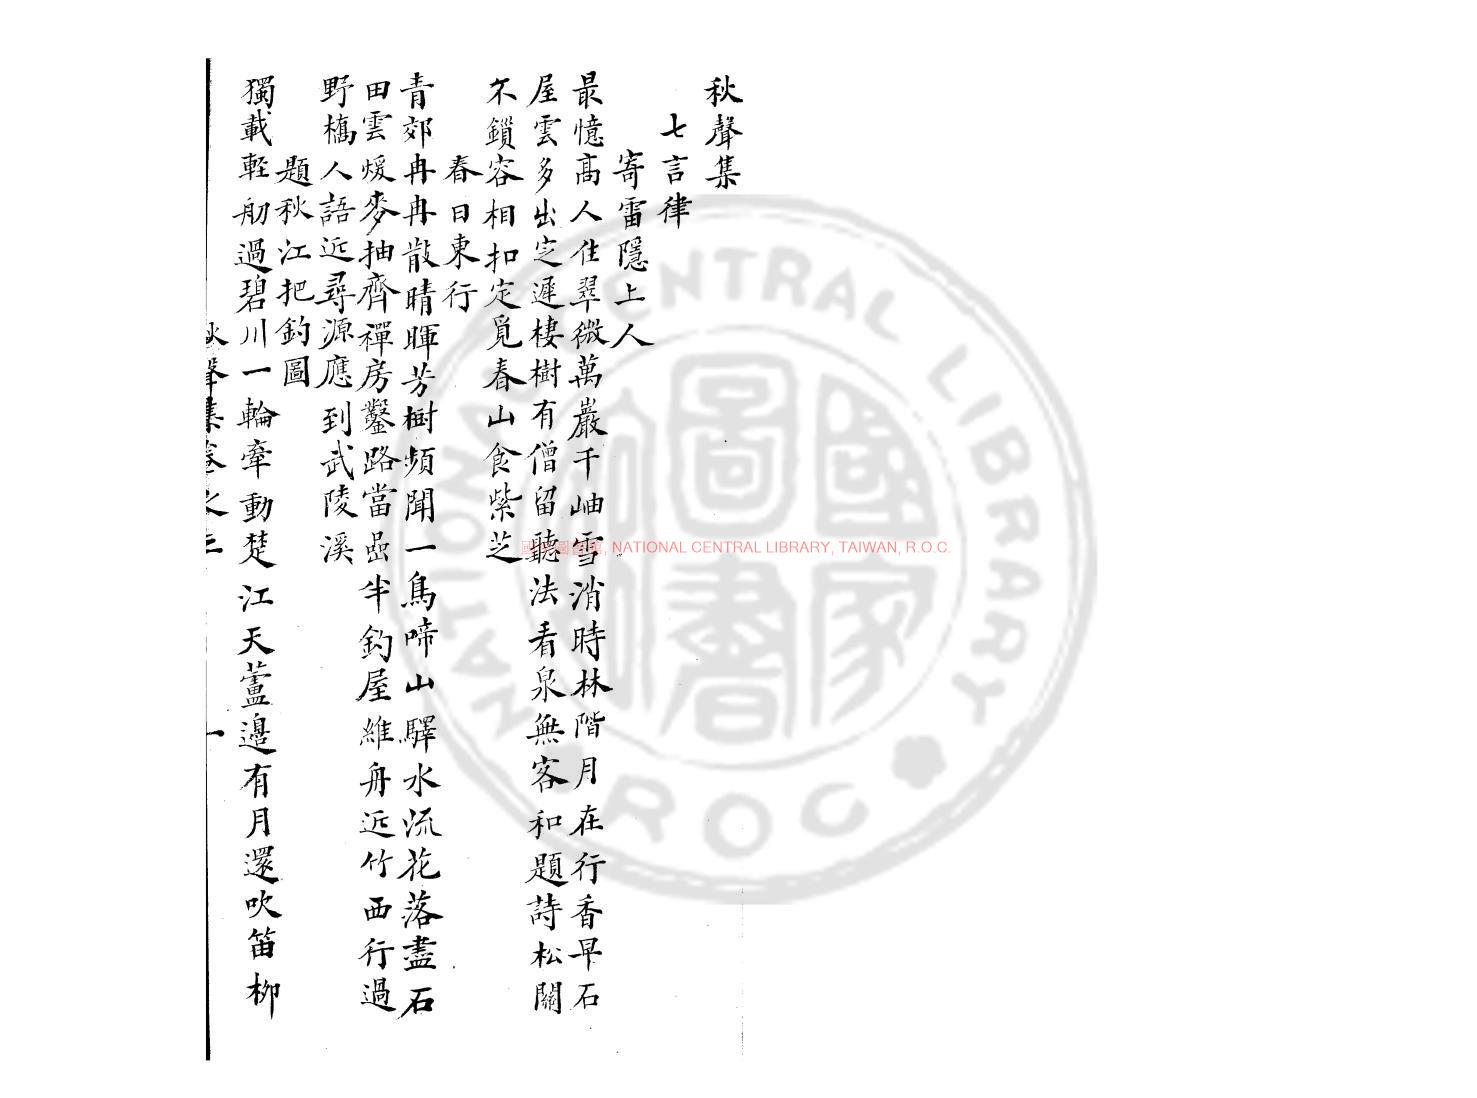 秋聲集
七言律
寄雷隱上人
最憶高人住翠微萬巖千岫雪消時林階月在行香早石
屋雲多出定遲棲樹有僧留聽法看泉無客和題詩松關
不鎖容相扣定覓春山食紫芝
春日東行
青郊冉冉散晴暉芳樹頻聞一鳥啼山驛水流花落盡石
田雲煖麥抽齊禪房鑿路當嵒半釣屋維舟近竹西行過
野橋人語近尋源應到武陵溪
題秋江把釣圖
獨載輕舠過碧川一輪牽動楚江天蘆邊有月還吹笛柳
秋聲集卷之三 一
國家圖書館, NATIONAL CENTRAL LIBRARY, TAIWAN, R.O.C.
NATIONAL CENTRAL LIBRARY
ROC
國家圖書